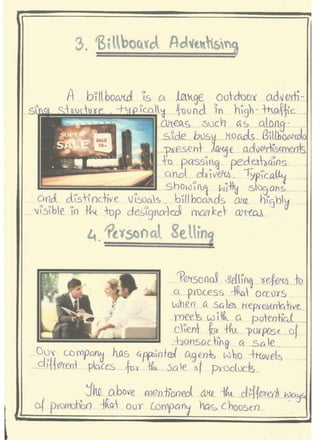 3. Billboard Advertising
A billboard is a large outdoor adverti-
sing structure, typically found in high-traffic
areas such as along-
side busy roads. Billboards
present large advertisements
to passing pedestrians
and drivers. Typically
showing witty slogans
and distinctive visuals, billboards are highly
visible in the top designated market areas.
SUPER
SALE
SALE
4. Personal Selling
Personal selling refers to
a process that occurs
when a sales representative
meets with a potential
client for the purpose of
transacting a sale
Our company has appointed agents who travels
different places for the sale of products.
The above mentioned are the different ways
of promotion that our company has choosen.